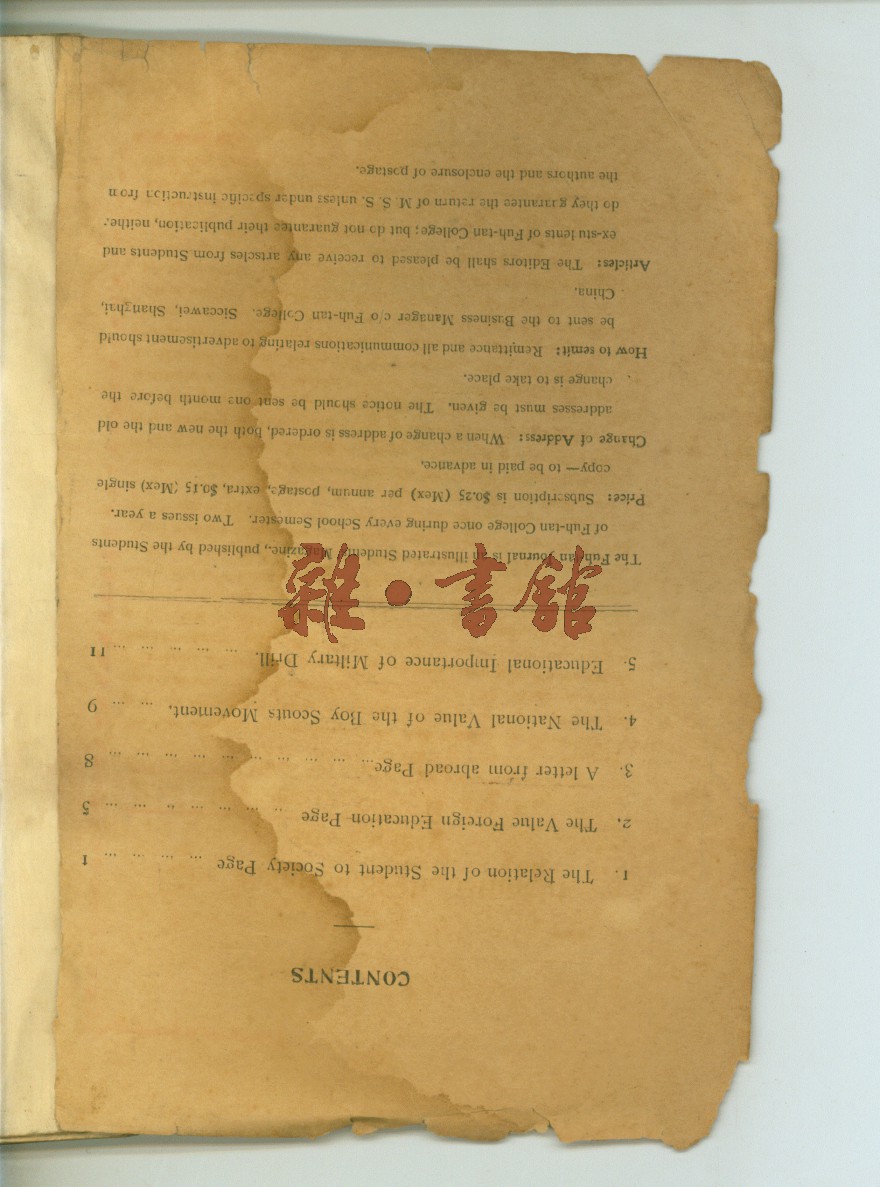 CONTENTS
1. The Relation of the Student to Society Page ... ... ... ... 1
2. The Value Foreign Education Page ... ... ... ... ... ... ... 5
3. A letter from abroad Page... ... ... ... ... ... ... ... ... ... 8
4. The National Value of the Boy Scouts Movement. ... ... 9
5. Educational Importance of Miltary Drill. ... ... ... ... ... 11
The Fuh-tan Journal is an illustrated Students Magazine., published by the Students
of Fuh-tan College once during every School Semester. Two issues a year.
Price: Subscription is $0.25 (Mex) per annum, postage, extra, $0.15 (Mex) single
copy— to be paid in advance.
Change of Address: When a change of address is ordered, both the new and the old
addresses must be given. The notice should be sent one month before the
change is to take place.
How to semit: Remittance and all communications relating to advertisement should
be sent to the Business Manager c/o Fuh-tan College. Siccawei, Shanghai,
China.
Articles: The Editors shall be pleased to receive any artscles from Students and
ex-stu lents of Fuh-tan College; but do not guarantee their publication, neither
do they guarantee the return of M. S. S. unless under specific instruction from
the authors and the enclosure of postage.
雜·書館